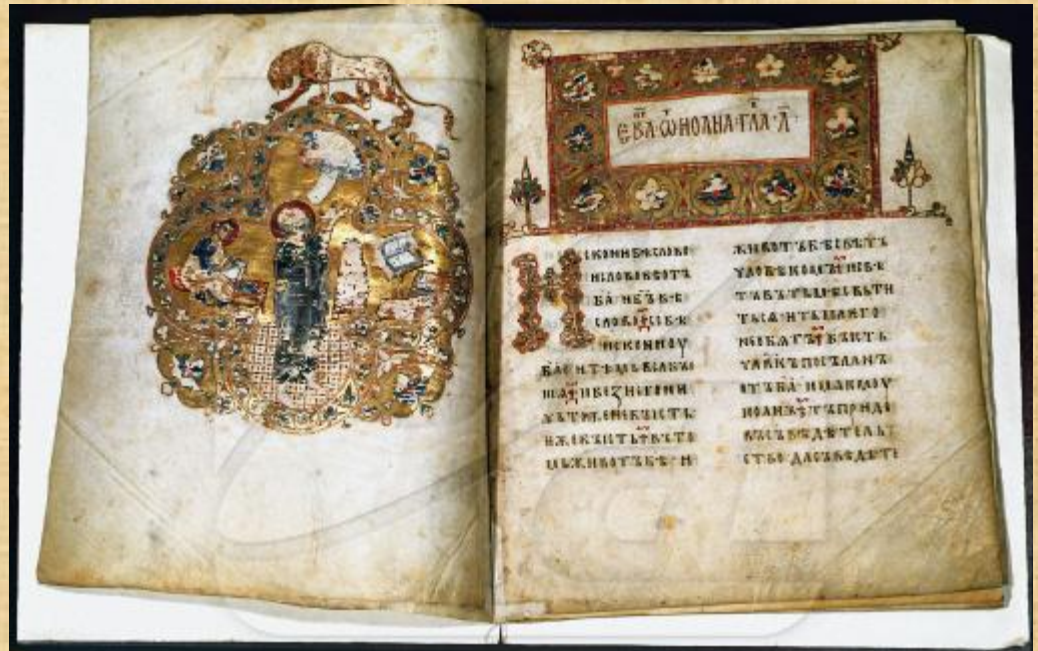 ЕВА · Ѿ ИОАНА · ГЛА · А
ИСКОНИ БѢ СЛОВО
И СЛОВО БѢ ОТЪ
БА · И БЪ БѢ
СЛОВО · СЕ БѢ
ИСКОНИ ОУ
БА · И ТѢМЬ ВЬСꙖ БЫ
ШѦ · И БЕЗ НЕГО НИ
ЧЬТОЖЕ НЕ БЫСТЬ
ѤЖЕ БЫСТЬ · ВЪ ТО
МЬ ЖИВОТЪ БѢ · И
ЖИВОТЪ БѢ СВѢТЪ
ЧЛОВѢКОМЪ · И СВѢ
ТЪ ВЪ ТЬМѢ СВЬТИ
ТЬСѦ · И ТЬМА ѤГО
НЕ ОБѦТЪ · БЫСТЬ
ЧЛВКЪ ПОСЪЛАНЪ
ОТЪ БА · ИМѦ ѤМОУ
ИОАНЪ · ТЪ ПРИДЕ
ВЪ СЪВѢДѢТЕЛЬ
СТВО · ДА СЪВѢДѢТЕ